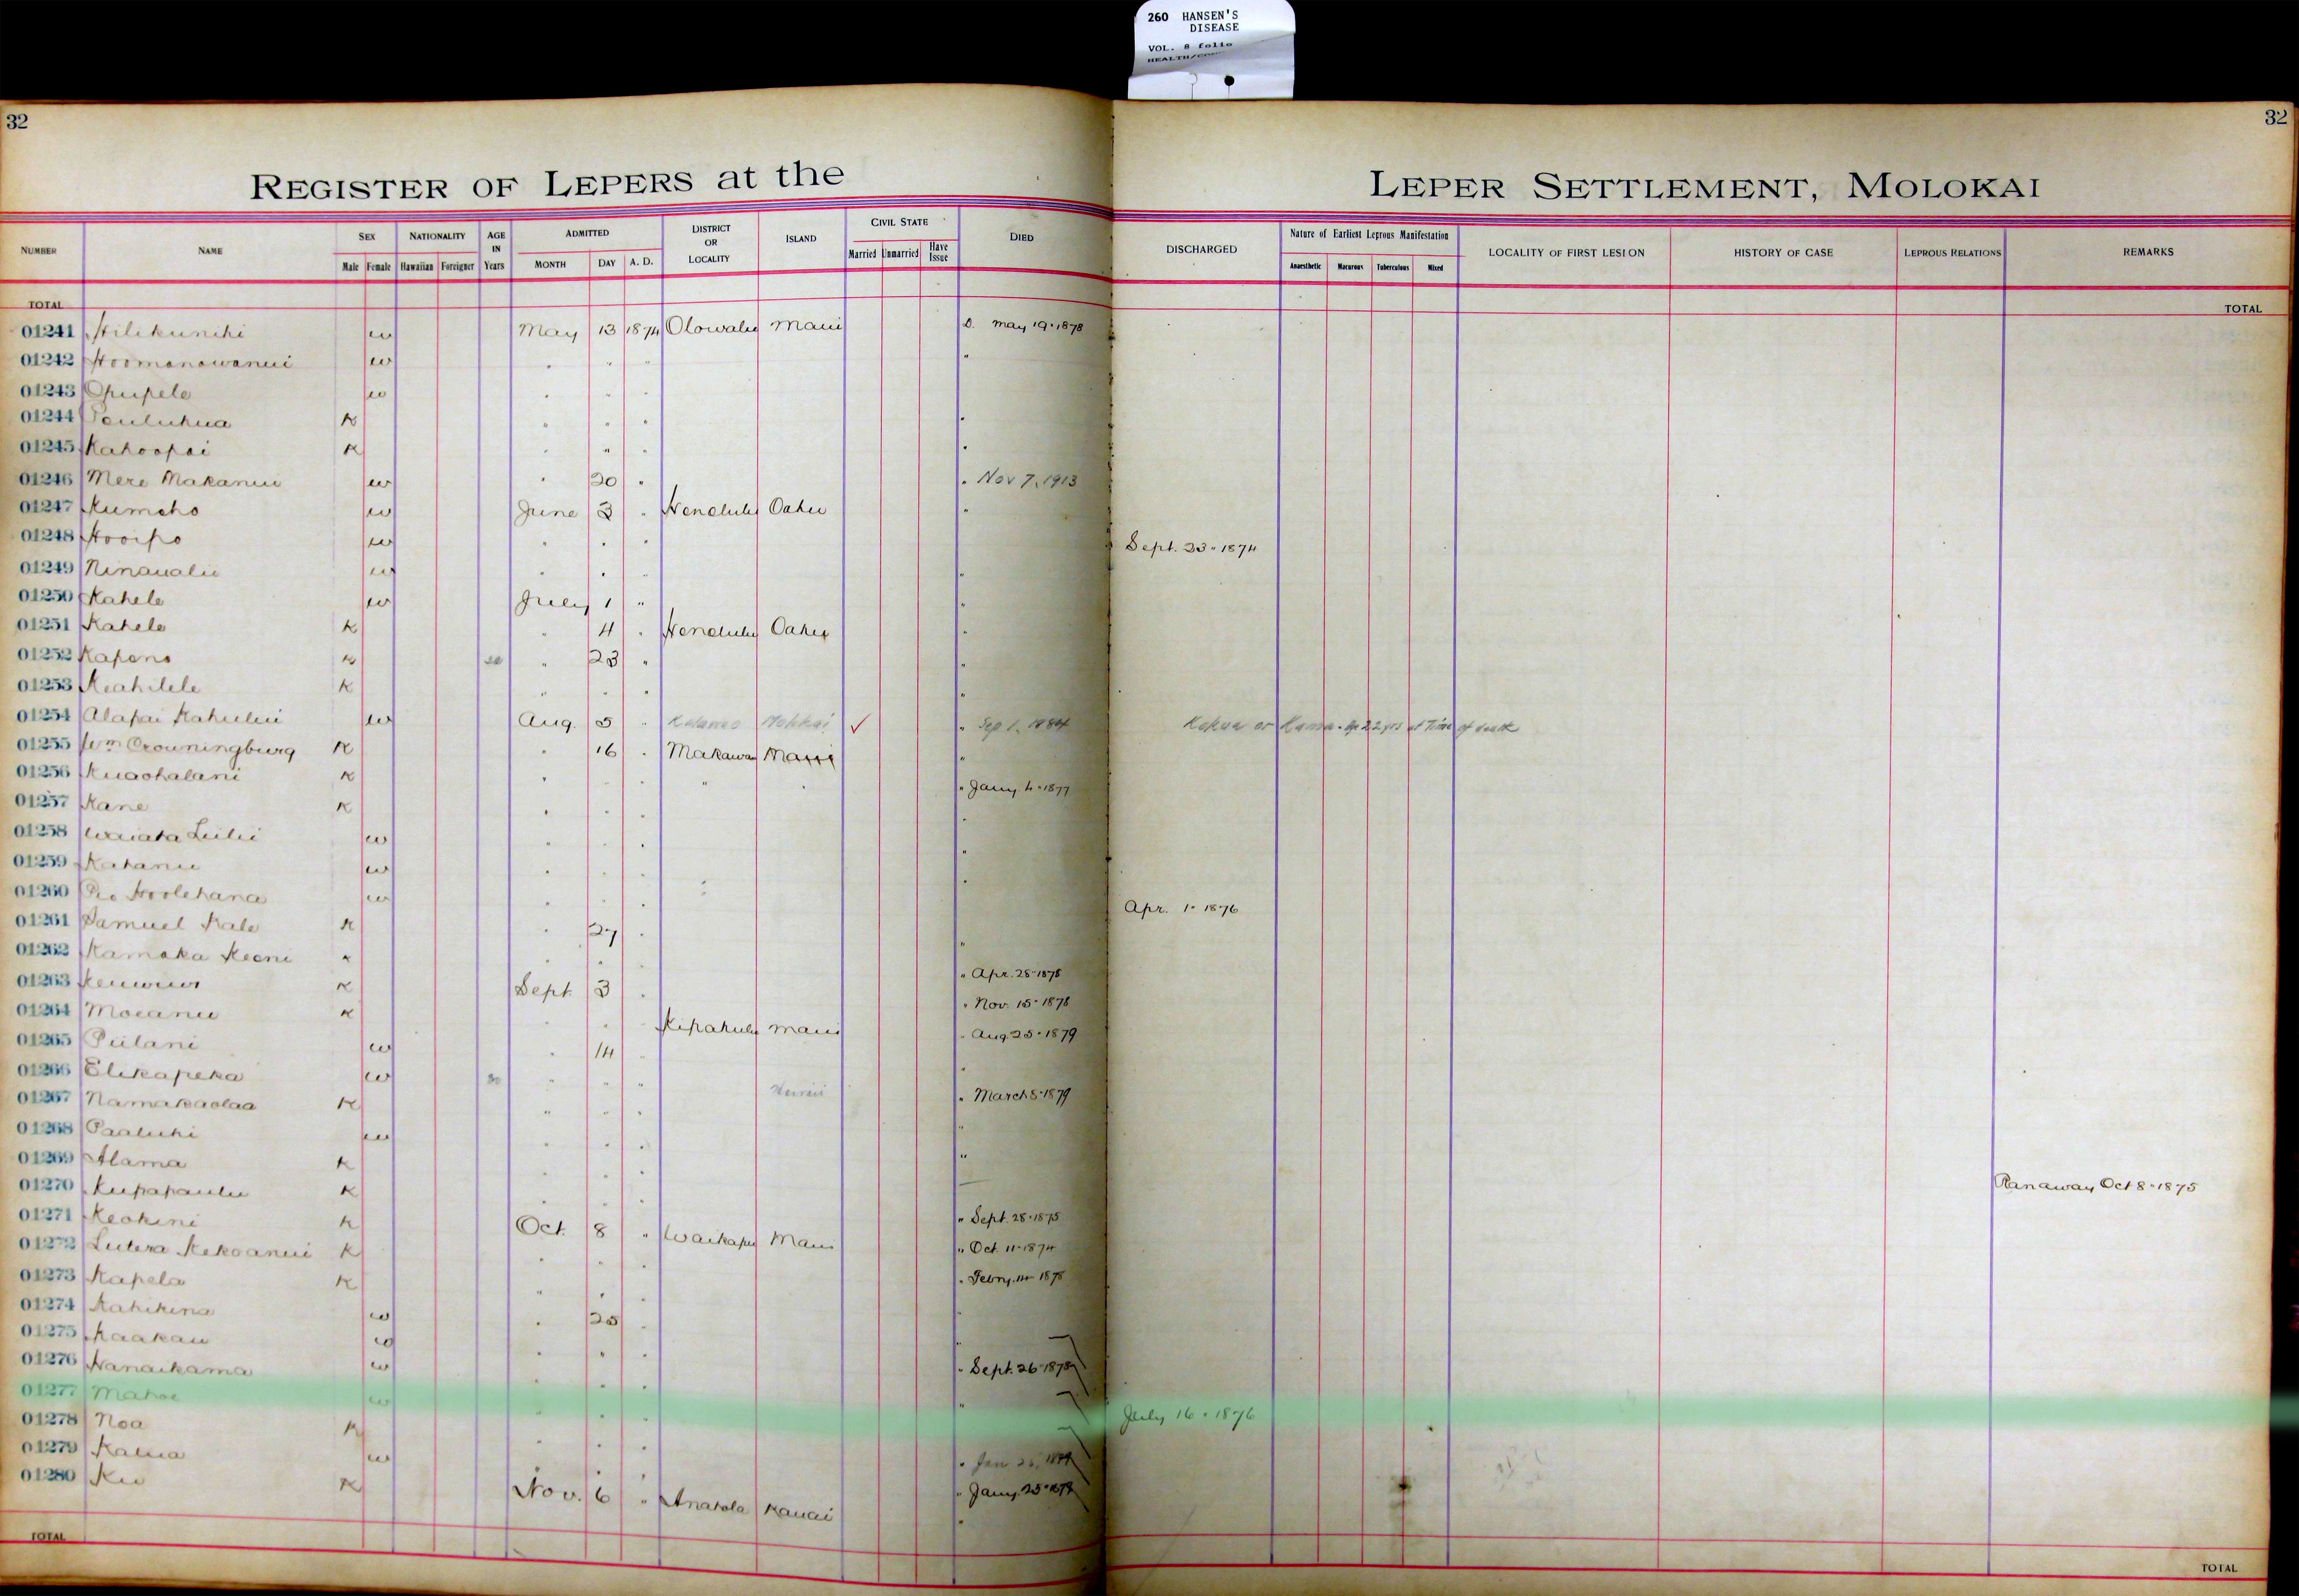 260 HANSEN'S
DISEASE
VOL. 8 folio
32
32
REGISTER OF LEPERS at the LEPER SETTLEMENT, MOLOKAI
NUMBER NAME SEX NATIONALITY AGE IN Years ADMITTED DISTRICT OR LOCALITY ISLAND CIVIL STATE DIED DISCHARGED Nature of Earliest Leprous Manifestation LOCALITY OF FIRST LESION HISTORY OF CASE LEPROUS RELATIONS REMARKS
Male Female Hawaiian Foreigner MONTH DAY A. D. Married Unmarried Have Issue Anaesthetic Macurous Tuberculous Mixed
TOTAL TOTAL
01241 Hilikunihi w May 13 1874 Olowalu Maui D. May 19 · 1878
01242 Hoomanawanui w " " " "
01243 Opupele w " " "
01244 K " " " "
01245 Kahoopai K " " " "
01246 Mere Makanui w " 20 " " Nov 7, 1913
01247 Kumeho w June 3 " Honolulu Oahu "
01248 Hooipo w " " " Sept. 23 · 1874
01249 Ninaualu w " " " "
01250 Kahele w July 1 " "
01251 Kahele K " 4 " Honolulu Oahu "
01252 Kapena K " 23 " "
01253 Keahilele K " " " "
01254 Alapai Kahului w Aug. 5 " Kalawao Molokai ✓ " Sep 1, 1884 Kokua or Kama · Age 22 yrs at Time of death
01255 Wm Crowningburg K " 16 " Makawao Maui "
01256 Kuaohalani K " " " " " " Jany 4 · 1877
01257 Kane K " " " "
01258 Waiata Luilii w " " " "
01259 Kahanu w " " " "
01260 Hoolehana w " " " Apr. 1 · 1876
01261 Samuel Kale K " 27 " "
01262 Kamaka Keoni K " " " " Apr. 28 · 1878
01263 K Sept 3 " " Nov. 15 · 1878
01264 Moeanu K " " " Kipahulu Maui " Aug 25 · 1879
01265 Piilani w " 14 " "
01266 Elikapeka w 30 " " " Hawaii " March 8 · 1879
01267 Namakaolaa K " " " "
01268 Paaluhi w " " " "
01269 Alama K " " "
01270 Kupapaulu K " " " Ranaway Oct 8 · 1875
01271 Keokini K Oct. 8 " Waikapu Maui " Sept. 28 · 1875
01272 Lutera Kekoanui K " " " Oct. 11 · 1874
01273 Kapela K " " " Febry. 14 · 1878
01274 Kahikina w " 25 " "
01275 Kaakau w " " " "
01276 Nanaikama w " " " Sept. 26 · 1878
01277 Mahoe w " " " July 16 · 1876
01278 Noa K " " "
01279 Kalua w " " " Jan 26, 1879
01280 Ku K Nov. 6 " Anahola Kauai " Jany. 25 · 1879
TOTAL TOTAL